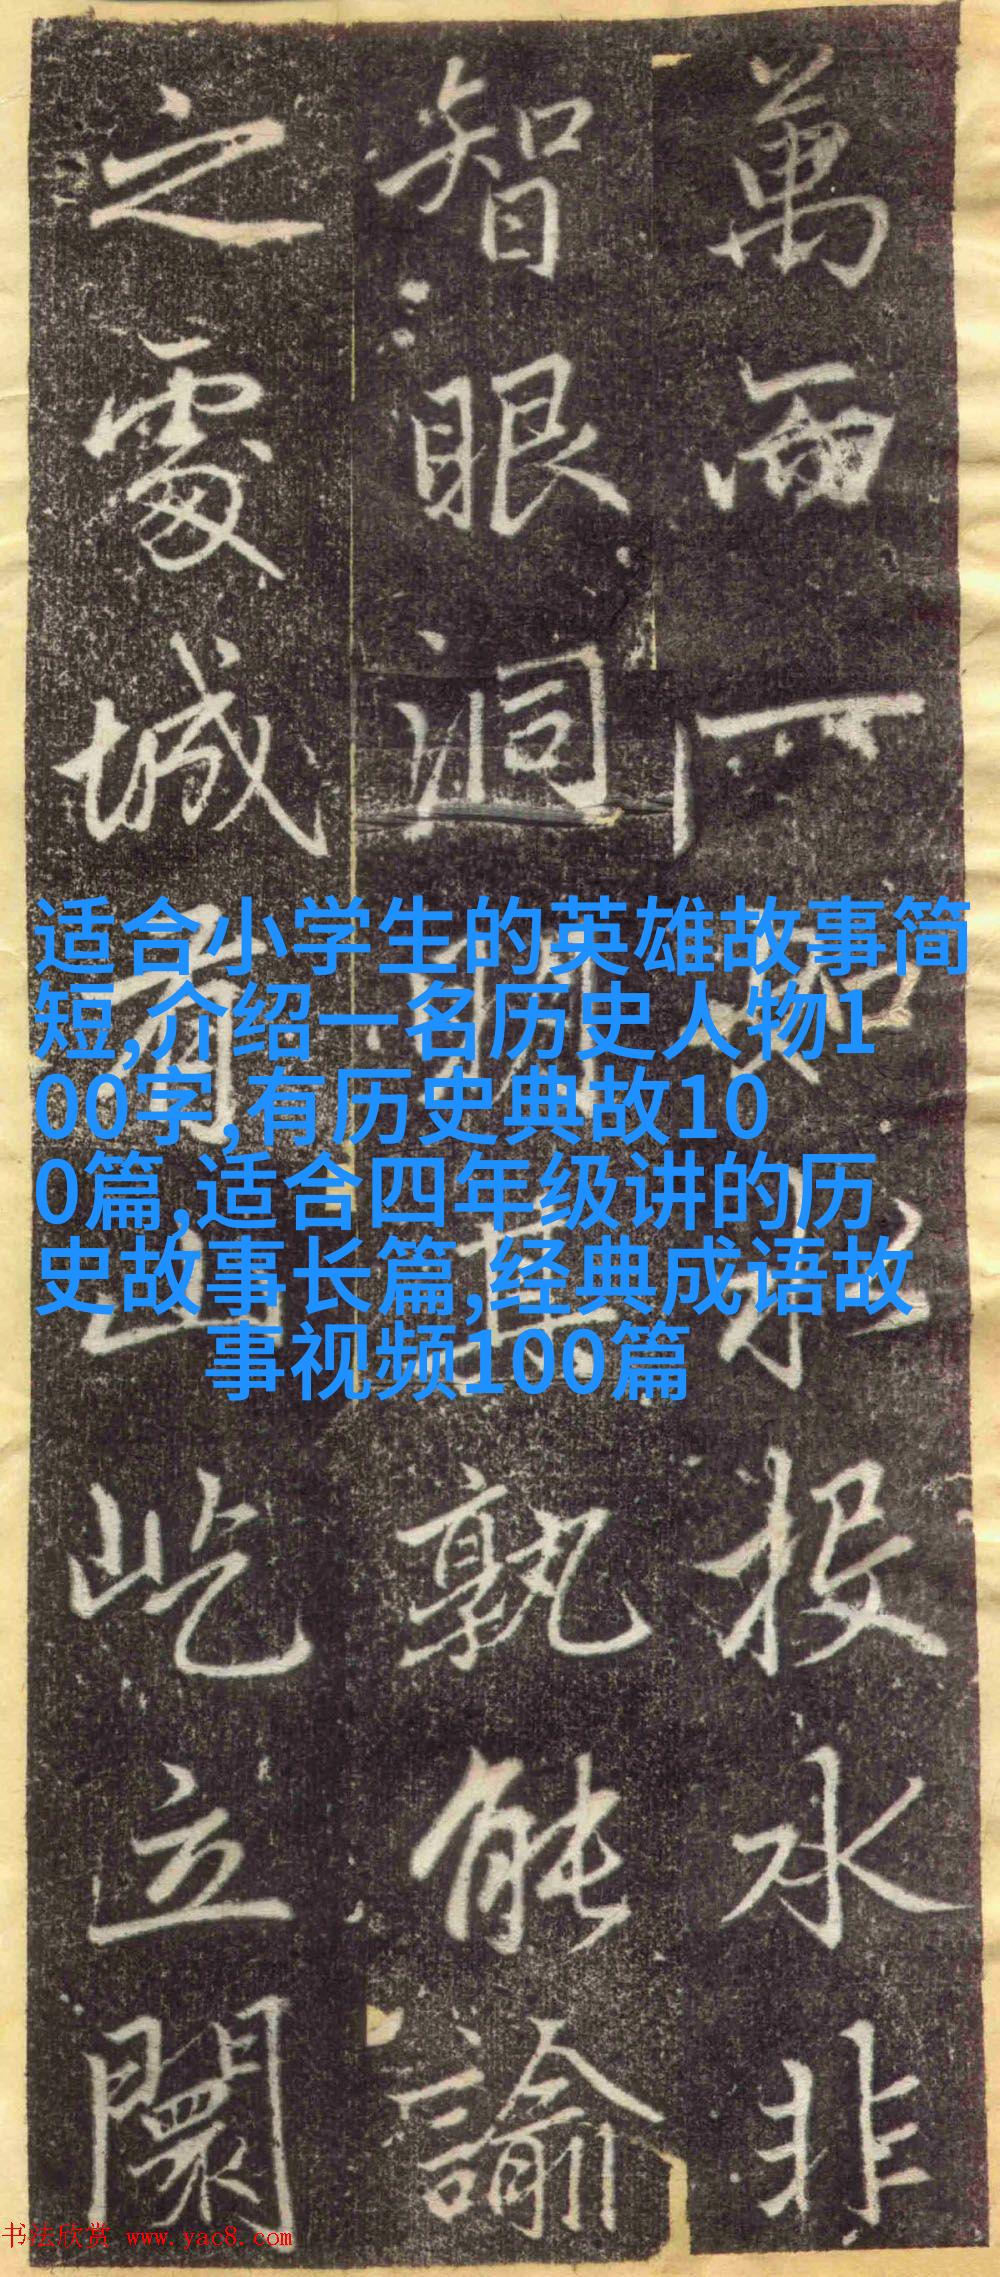 萬而一如水投水非
智眼洞明其孰能諭
之處城有山屹立闤
适合小学生的英雄故事简
短,介绍一名历史人物1
00字,有历史典故10
0篇,适合四年级讲的历
史故事长篇,经典成语故
事视频100篇
书法欣赏 www.yac8.com